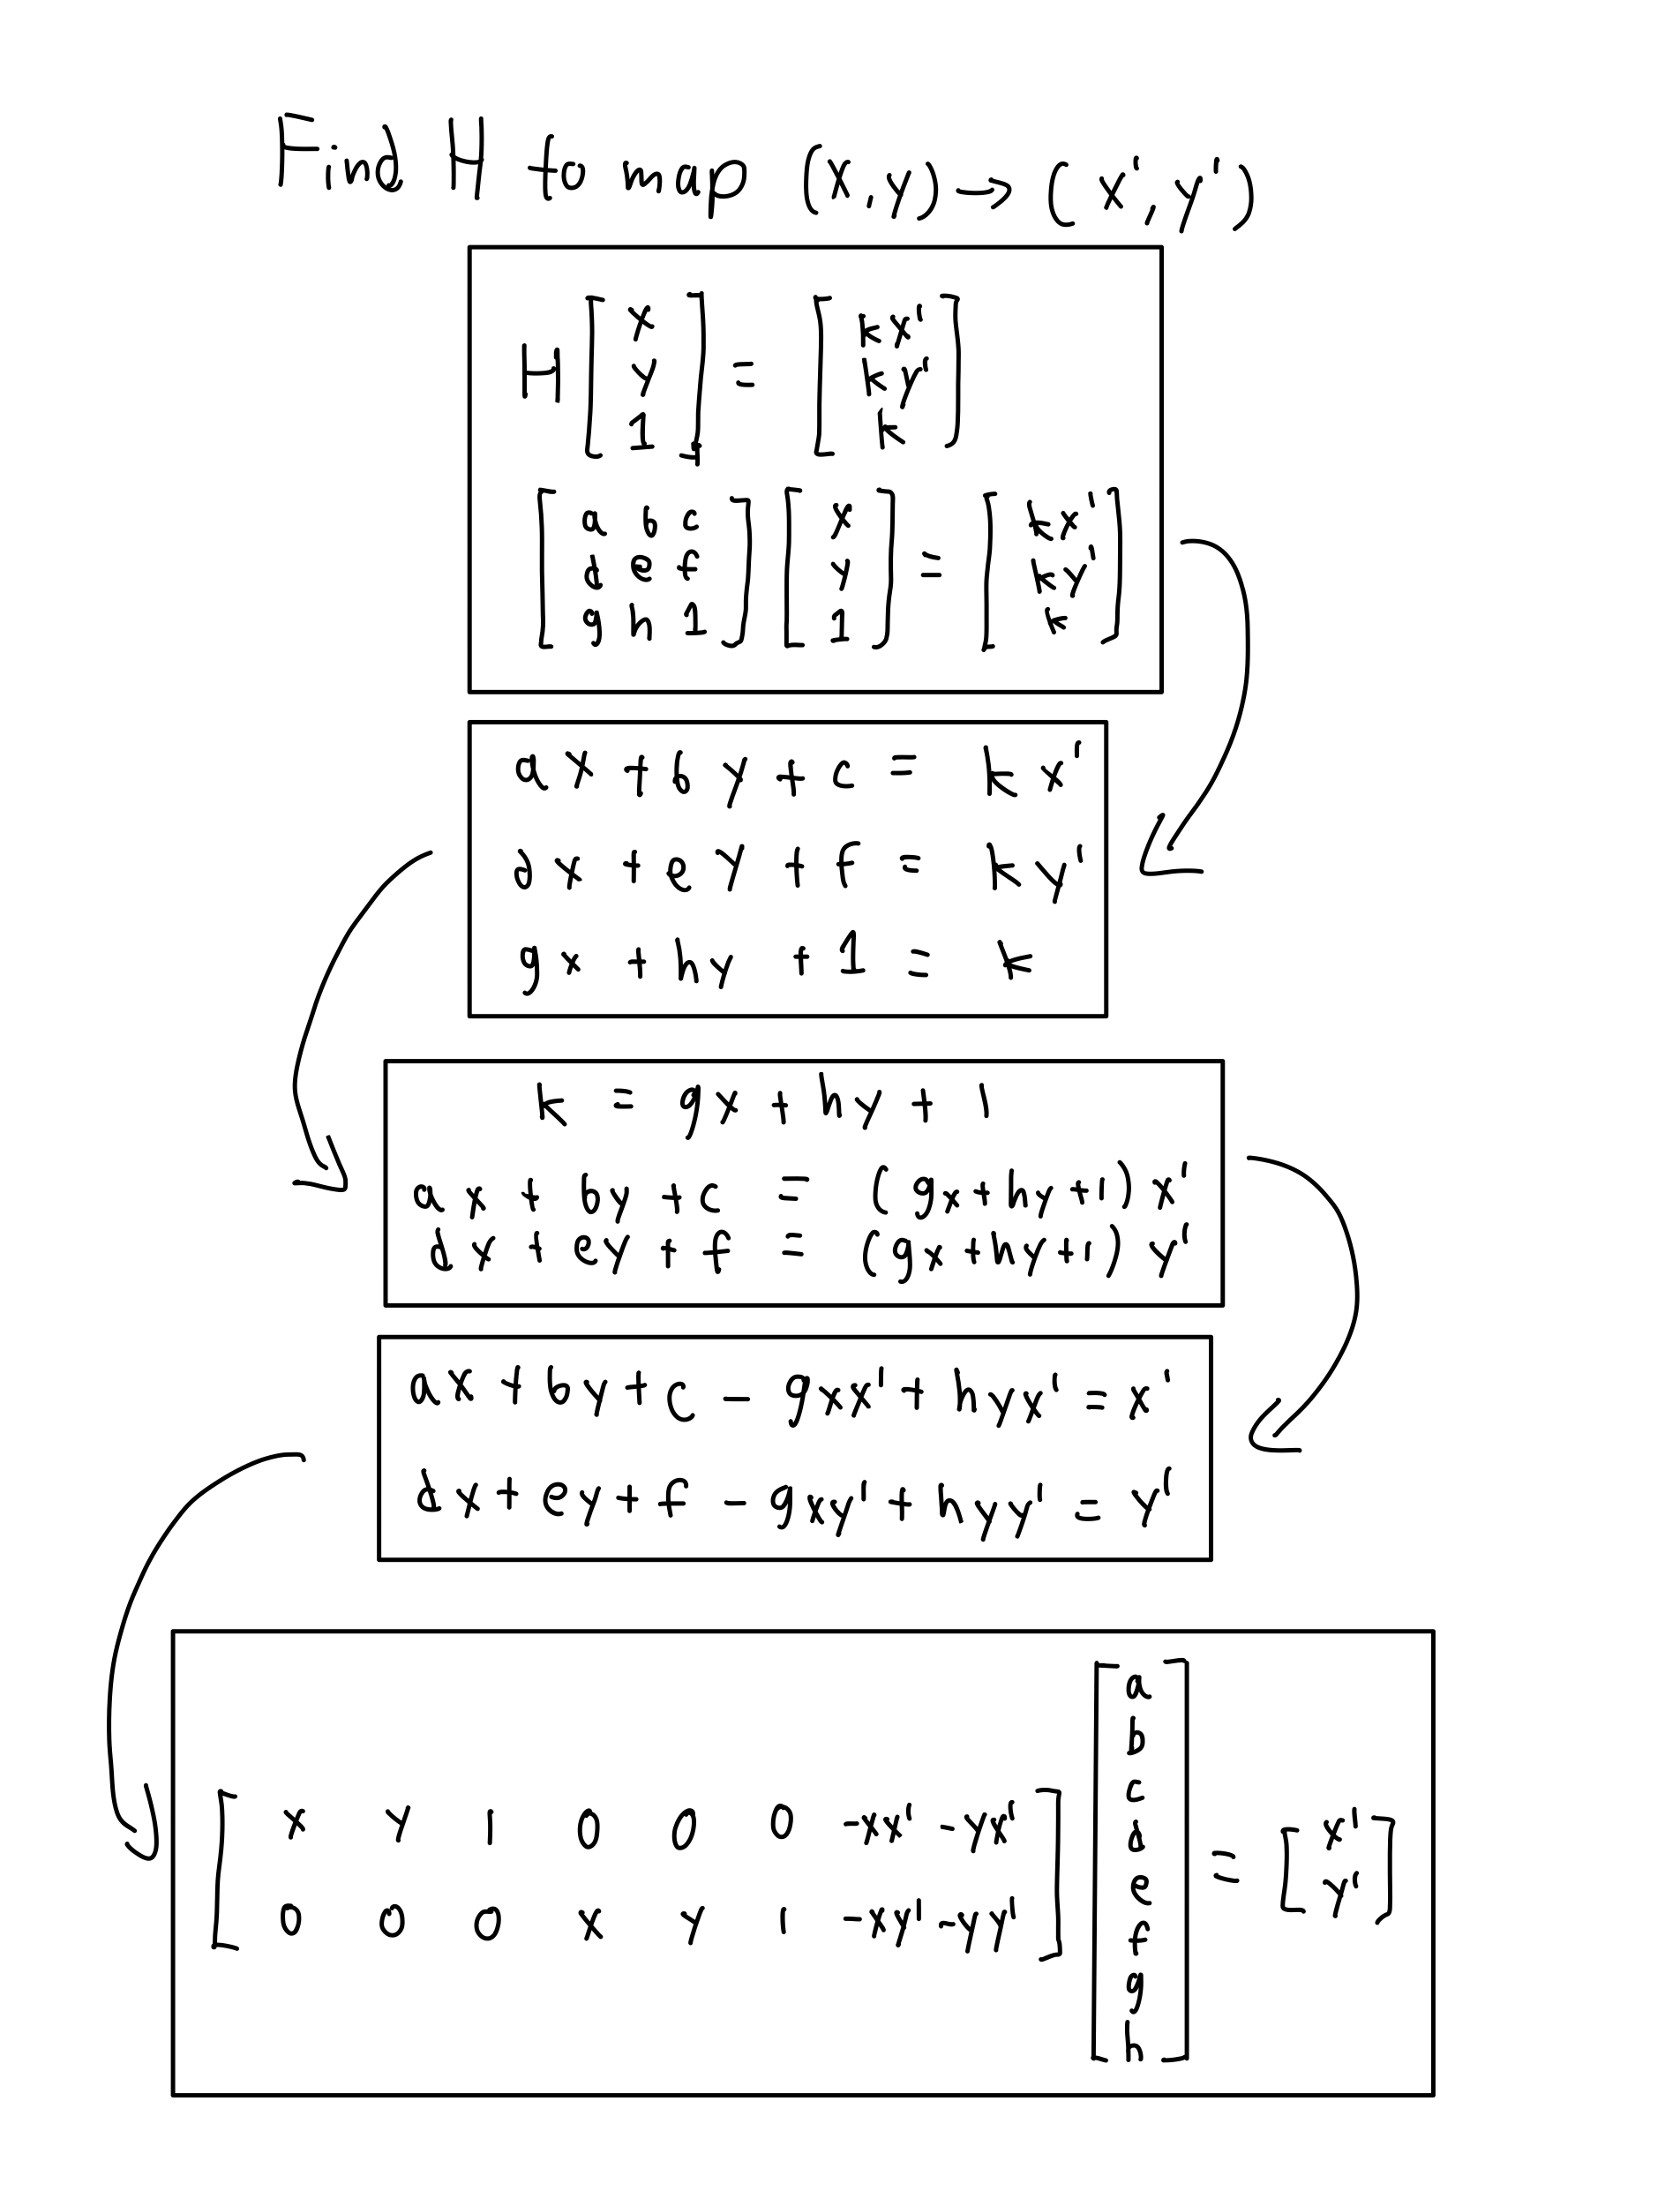 Find H to map (x,y) → (x',y')
H [x y 1] = [kx' ky' k]
[a b c
d e f
g h 1] [x y 1] = [kx' ky' k]
ax + by + c = kx'
dx + ey + f = ky'
gx + hy + 1 = k
k = gx + hy + 1
ax + by + c = (gx+hy+1)x'
dx + ey + f = (gx+hy+1)y'
ax + by + c - gxx' + hyx' = x'
dx + ey + f - gxy' + hyy' = y'
[x y 1 0 0 0 -xx' -yx'
0 0 0 x y 1 -xy' -yy'] [a b c d e f g h] = [x' y']